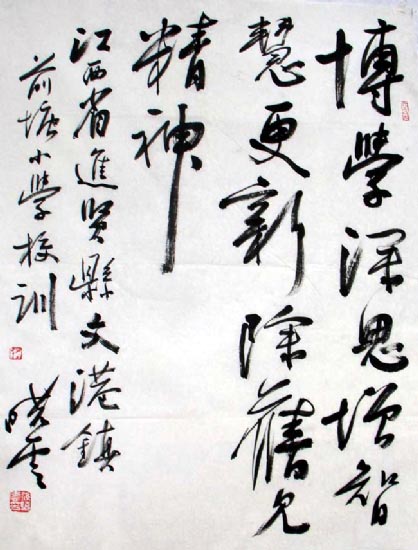 博學深思增智
慧更新除舊見
精神
江西省進賢縣文港鎮
前塘小學校訓
曉雲